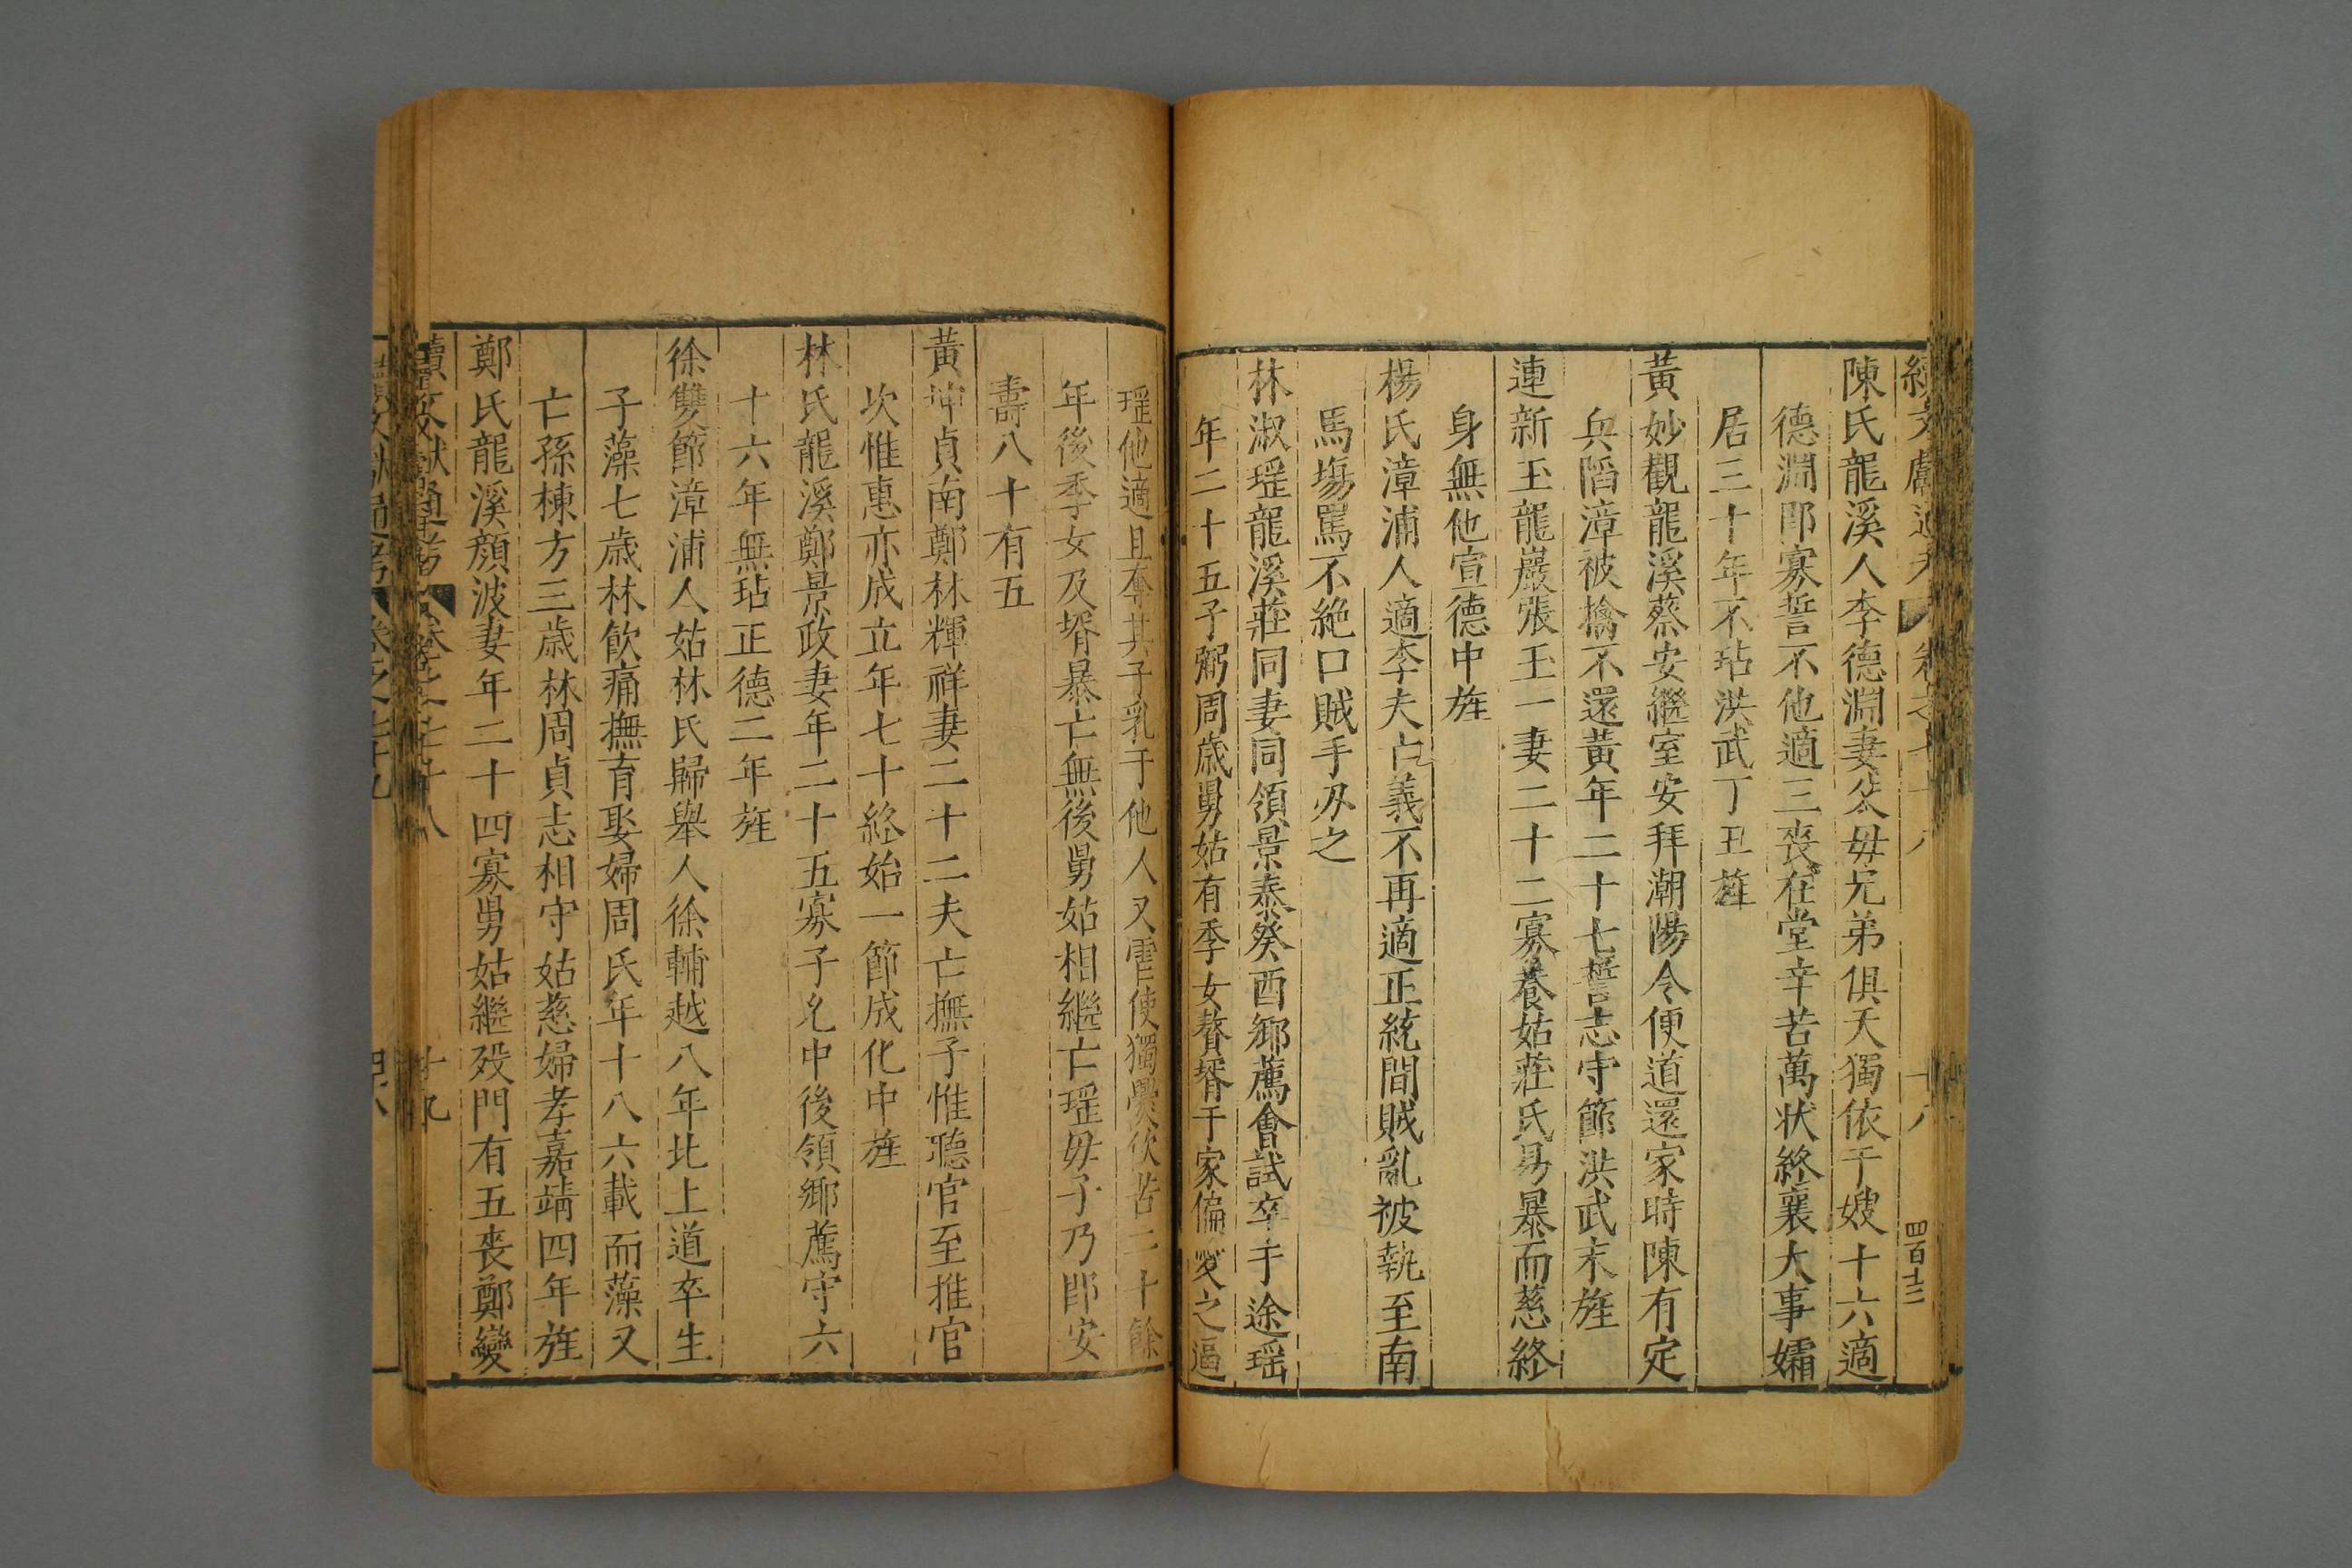 續文獻通考 卷之七十八 十八 四百十三
陳氏龍溪人李德淵妻父母兄弟俱夭獨依于嫂十六適
德淵即寡誓不他適三喪在堂辛苦萬状終襄大事孀
居三十年不玷洪武丁丑旌
黃妙觀龍溪蔡安繼室安拜潮陽令便道還家時陳有定
兵陷漳被擒不還黃年二十七誓志守節洪武末旌
連新玉龍巖張玉一妻二十二寡養姑莊氏易暴而慈終
身無他宣德中旌
楊氏漳浦人適李夫亡義不再適正統間賊亂被執至南
馬塲罵不絶口賊手刃之
林淑瑶龍溪莊同妻同領景泰癸酉鄉薦會試卒于途瑶
年二十五子弼周歲舅姑有季女贅壻于家偏愛之逼
瑶他適且奪其子乳于他人又使獨爨伙苦二十餘
年後季女及壻暴亡無後舅姑相繼亡瑶母子乃即安
壽八十有五
黃坤貞南鄭林輝祥妻二十二夫亡撫子惟聽官至推官
坎惟惠亦成立年七十終始一節成化中旌
林氏龍溪鄭景政妻年二十五寡子允中後領鄉薦守六
十六年無玷正德二年旌
徐雙節漳浦人姑林氏歸舉人徐輔越八年北上道卒生
子藻七歲林飲痛撫育娶婦周氏年十八六載而藻又
亡孫棟方三歲林周貞志相守姑慈婦孝嘉靖四年旌
鄭氏龍溪顔波妻年二十四寡舅姑繼殁門有五喪鄭變
續文獻通考 卷之七十八 十九